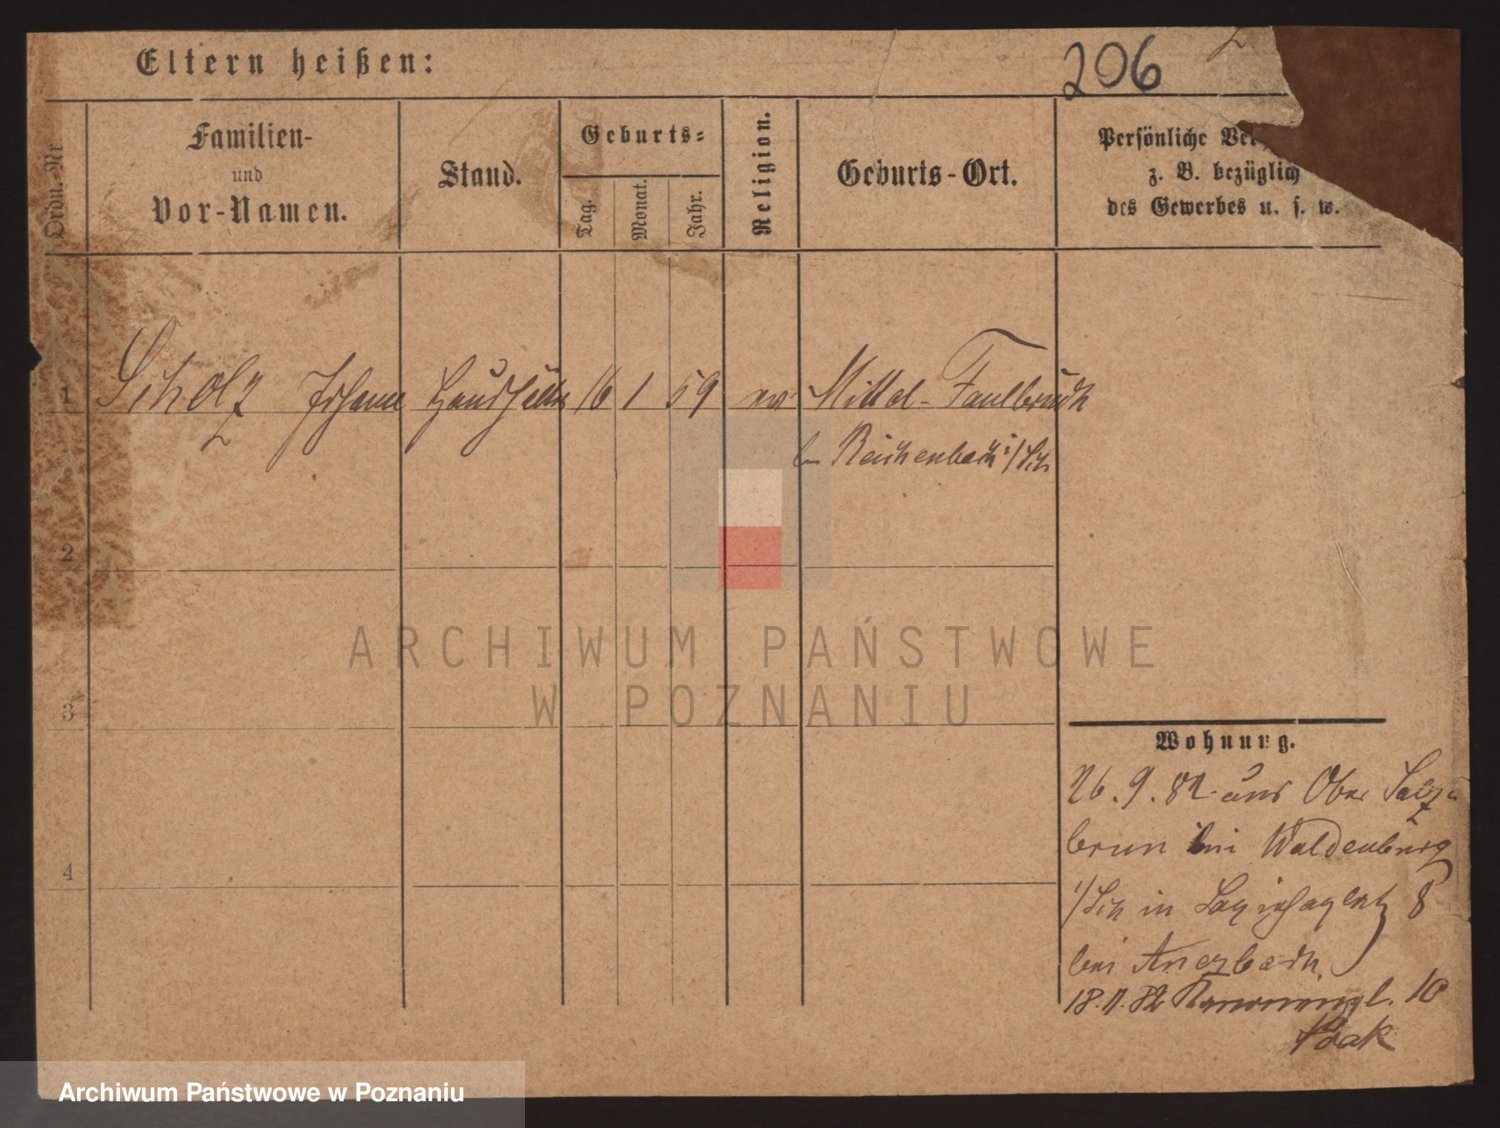 Eltern heißen:
206
Ordn.-Nr.
Familien-
und
Vor-Namen.
Stand.
Geburts-
Tag.
Monat.
Jahr.
Religion.
Geburts-Ort.
Persönliche
z. B. bezüglich
des Gewerbes u. s. w.
1
Scholz Johann Haushälter 16 1 59 ev Mittel-Faulbrück
b Reichenbach i/Sch
2
3
4
Wohnung.
26.9.82 aus Ober Salz
brun bei Waldenburg
i/Sch in 8
bei
18. 82 10
ARCHIWUM PAŃSTWOWE
W POZNANIU
Archiwum Państwowe w Poznaniu